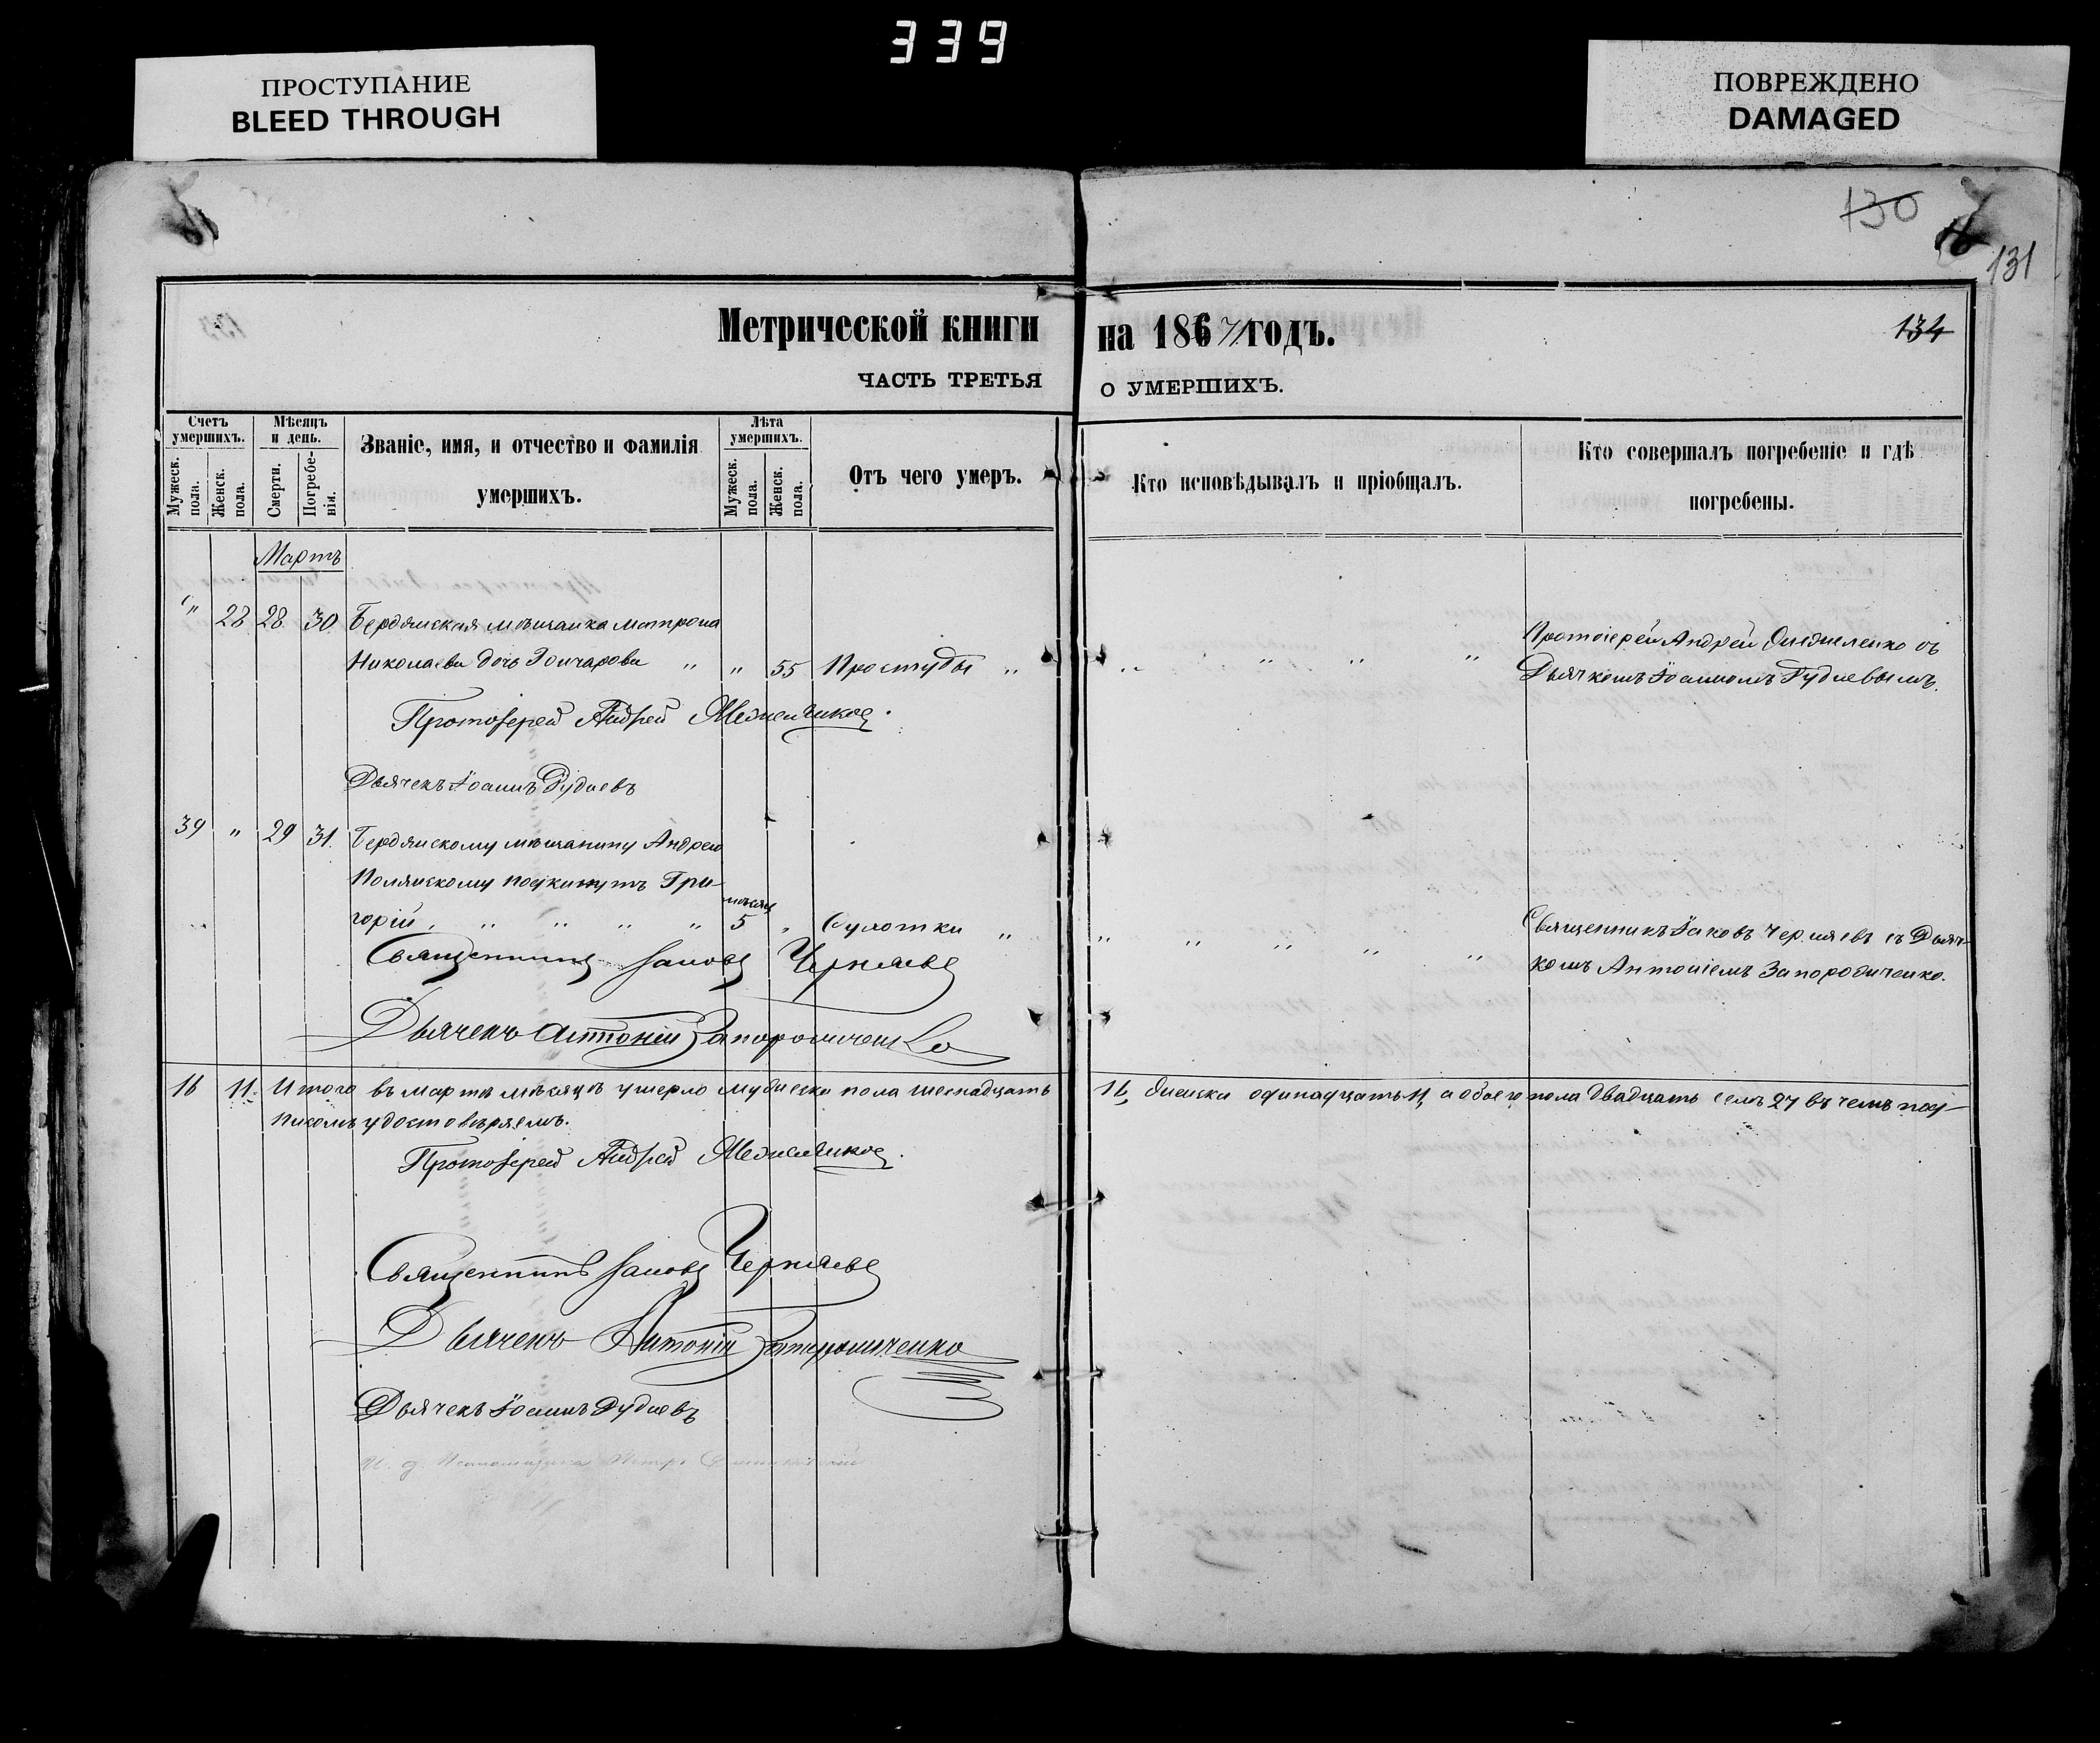 339
ПРОСТУПАНИЕ
BLEED THROUGH
ПОВРЕЖДЕНО
DAMAGED
130
131
Метрической книги на 1867 годъ.
134
ЧАСТЬ ТРЕТЬЯ О УМЕРШИХЪ.
Счетъ умершихъ.
Мужеск. пола.
Женск. пола.
Мѣсяцъ и день.
Смерти.
Погребенія.
Званіе, имя, и отчество и фамилія
умершихъ.
Лѣта умершихъ.
Мужеск. пола.
Женск. пола.
Отъ чего умеръ.
Кто исповѣдывалъ и пріобщалъ.
Кто совершалъ погребеніе и гдѣ
погребены.
Мартъ
" 28 28 30 Бердянская мѣщанка Матрона
Николаева дочь Гончарова " " 55 Простуды "
Протоіерей Андрей съ
Дьячкомъ Іоанномъ
Протоіерей Андрей
Дьячекъ Іоаннъ
39 " 29 31. Бердянскому мѣщанину Андрею
Полянскому подкинутъ Гри-
горій " " " " мѣсяц 5 " Сухотки "
Священникъ Іаковъ Черняевъ съ Дьяч-
комъ Антоніемъ Запорожченко.
Священникъ Іаковъ Черняевъ
Дьячекъ Антоній Запорожченко
16 11. Итого въ мартѣ мѣсяцѣ умерло мужеска пола шеснадцать 16, женска одинадцать 11, а обоего пола двадцать семъ 27 въ чемъ под-
писомъ удостовѣряемъ.
Протоіерей Андрей
Священникъ Іаковъ Черняевъ
Дьячекъ Антоній Запорожченко
Дьячекъ Іоаннъ